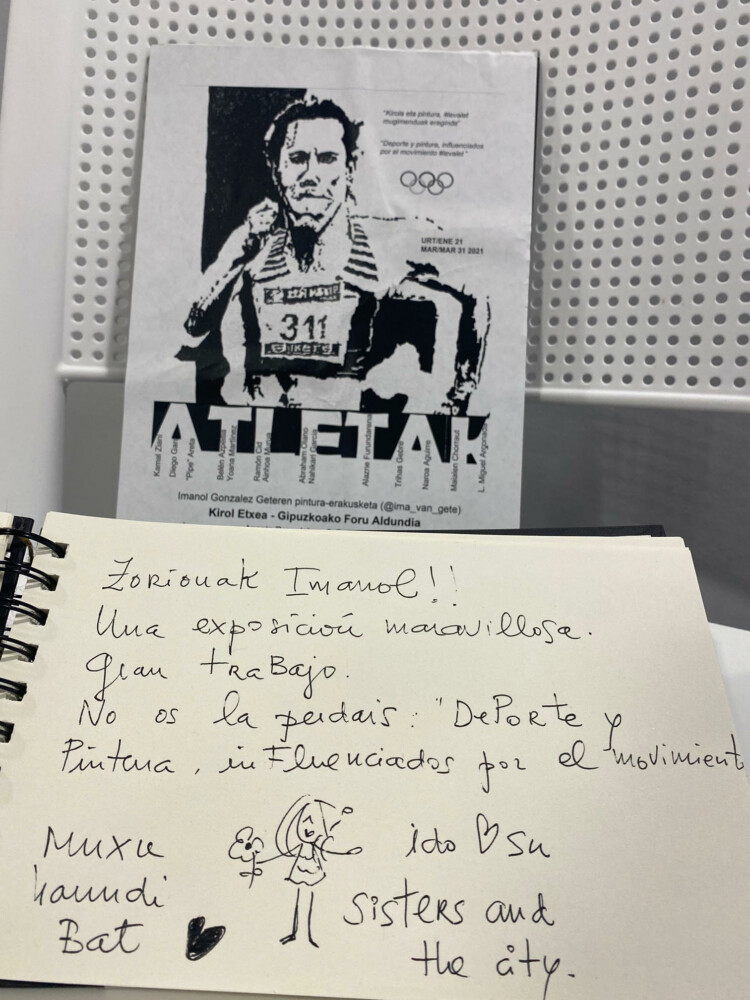 "Kirola eta pintura, #levalet
mugimenduak eraginda"
"Deporte y pintura, influenciados
por el movimiento #levalet "
URT/ENE 21
MAR/MAR 31 2021
311
ATLETAK
Kamal Ziani
Diego García
"Pipe" Areta
Belén Azpeitia
Yoana Martínez
Ramón Cid
Ainhoa Murua
Abraham Olano
Nahikari García
Alazne Furundarena
Trihas Gebre
Naroa Agirre
Maialen Chorraut
L. Miguel Argonadaz
Imanol Gonzalez Geteren pintura-erakusketa (@ima_van_gete)
Kirol Etxea - Gipuzkoako Foru Aldundia
Zorionak Imanol!!
Una exposición maravillosa.
Gran traBajo.
No os la perdais: "DePorte y
Pintura, inFluenciados por el movimient
Muxu
haundi
Bat
ido ♡ su
sisters and
the city.